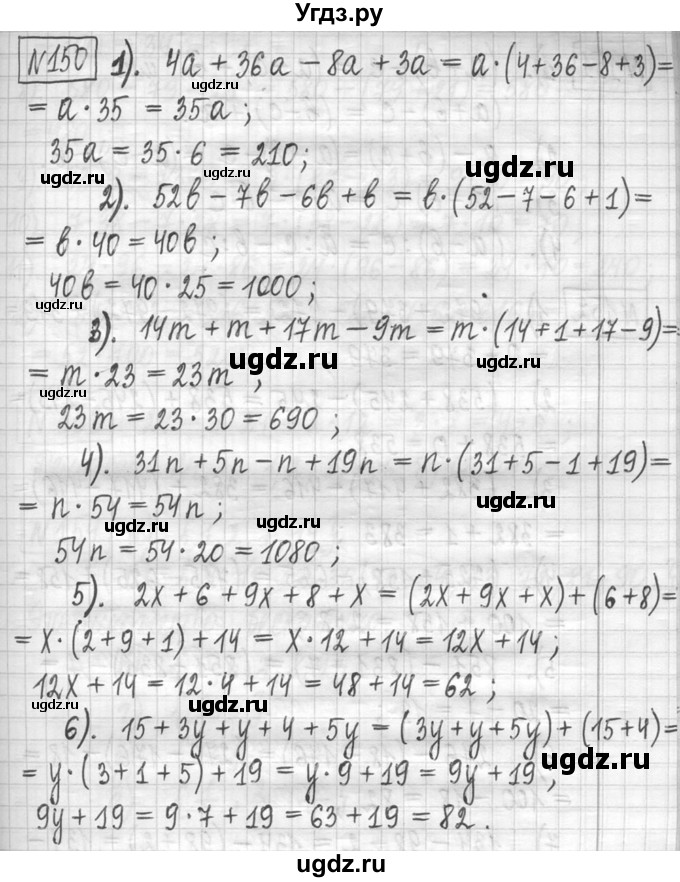 Угдз.ру
№150 1). 4a + 36a − 8a + 3a = a·(4+36−8+3)=
= a·35 = 35a ;
35a = 35·6 = 210;
ugdz.ru
ugdz.ru
2). 52в − 7в − 6в + в = в·(52−7−6+1)=
= в·40 = 40в ;
40в = 40·25 = 1000 ;
ugdz.ru
3). 14m + m + 17m − 9m = m·(14+1+17−9)=
ugdz.ru
ugdz.ru
= m·23 = 23m ;
23m = 23·30 = 690 ;
4). 31n + 5n − n + 19n = n·(31+5−1+19)=
ugdz.ru
ugdz.ru
= n·54 = 54n ;
ugdz.ru
ugdz.ru
54n = 54·20 = 1080 ;
5). 2x + 6 + 9x + 8 + x = (2x + 9x + x) + (6+8)=
ugdz.ru
= x·(2+9+1) + 14 = x·12 + 14 = 12x + 14 ;
12x + 14 = 12·4 + 14 = 48 + 14 = 62 ;
ugdz.ru
ugdz.ru
6). 15 + 3y + y + 4 + 5y = (3y + y + 5y) + (15+4)=
ugdz.ru
= y·(3+1+5) + 19 = y·9 + 19 = 9y + 19 ;
9y + 19 = 9·7 + 19 = 63 + 19 = 82 .
ugdz.ru
ugdz.ru